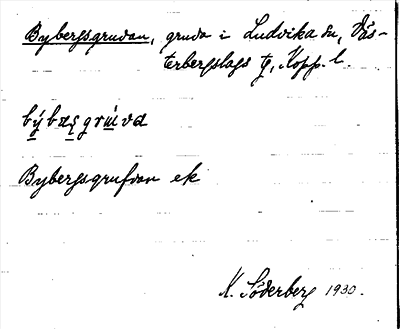 Bybergsgruvan, gruva i Ludvika sn, Väs-
terbergslags tg, Kopp. l.
býbæs̨grúva
Bybergsgrufvan ek
K. Söderberg 1930.